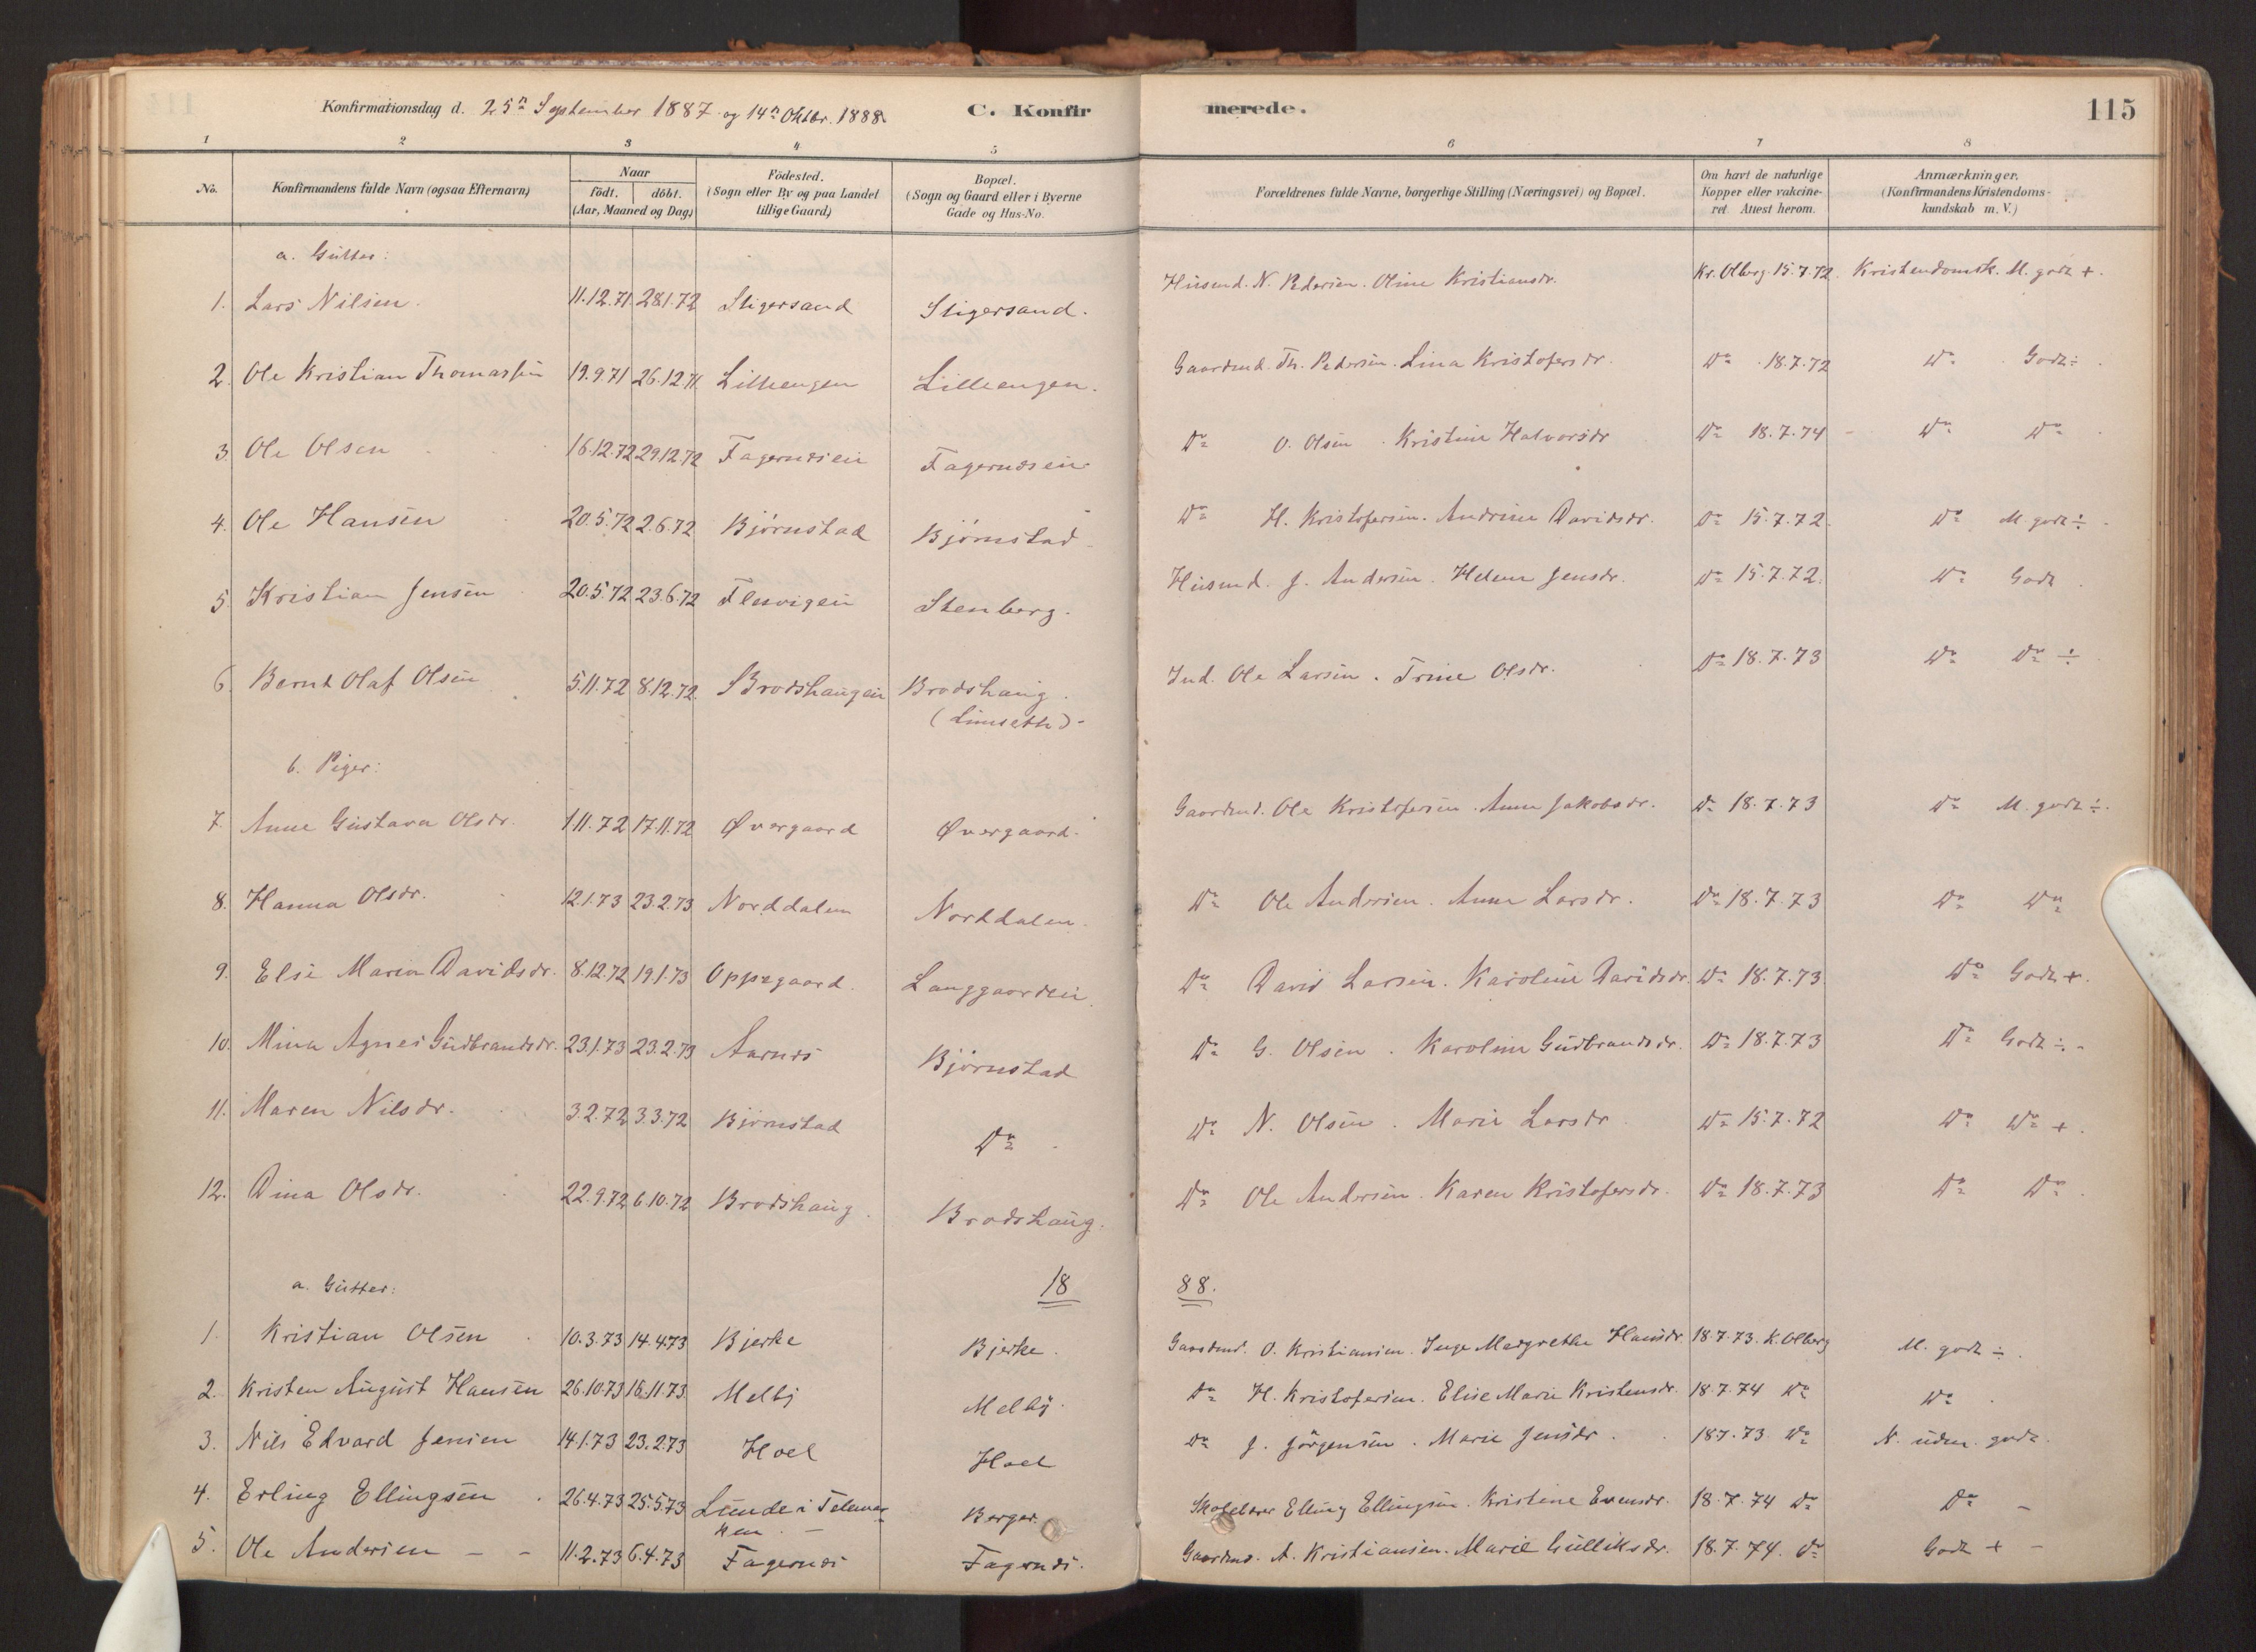 Konfirmationsdag d. 25de September 1887 og 14de Oktbr. 1888. C. Konfirmerede. 115
1 2 3 4 5 6 7 8
No. Konfirmandens fulde Navn (ogsaa Efternavn) Naar födt. döbt. (Aar, Maaned og Dag) Födested. (Sogn eller By og paa Landet tillige Gaard) Bopæl. (Sogn og Gaard eller i Byerne Gade og Hus-No. Forældrenes fulde Navne, borgerlige Stilling (Næringsvei) og Bopæl. Om havt de naturlige Kopper eller vakcineret Attest herom. Anmærkninger. (Konfirmandens Kristendomskundskab m. V.)
a. Gutter:
1. Lars Nilsen. 11.12.71 28.1.72 Stigersand Stigersand. Husmd. N. Pedersen. Oline Kristiansdr. Kr. Olberg. 15.7.72. Kristendomsk. M. godt +.
2. Ole Kristian Thomassen 19.9.71 26.12.71 Lilleengen Lilleengen. Gaardmd. Th. Pedersen. Lina Kristofersdr. Do 18.7.72 Do Godt ÷.
3. Ole Olsen 16.12.72 29.12.72 Fagernæsen Fagernæsen. Do O. Olsen. Kristine Halvorsdr Do 18.7.74 Do Do
4. Ole Hansen 20.5.72 2.6.72 Bjørnstad Bjørnstad Do H. Kristofersen. Andrine Davidsdr. Do 15.7.72. Do M. godt ÷
5. Kristian Jensen 20.5.72 23.6.72 Flesvigen Stenberg. Husmd. J. Andersen. Helene Jensdr. Do 15.7.72. Do Godt.
6. Bernt Olaf Olsen 5.11.72 8.12.72 Brodshaugen Brodshaug. Ind. Ole Larsen. Trine Olsdr. Do 18.7.73 Do Do ÷
(Limseth)
b. Piger:
7. Anne Gustava Olsdr. 1.11.72 17.11.72 Øvergaard Øvergaard. Gaardmd. Ole Kristofersen. Anne Jakobsdr. Do 18.7.73 Do M. godt ÷.
8. Hanna Olsdr. 12.1.73 23.2.73 Norddalen Norddalen. Do Ole Andersen. Anne Larsdr. Do 18.7.73 Do Do
9. Else Maren Davidsdr. 8.12.72 19.1.73 Oppegaard. Langgaarden. Do David Larsen. Karoline Davidsdr. Do 18.7.73. Do Godt +.
10. Mina Agnes Gudbrandsdr. 23.1.73 23.2.73 Aarnæs Bjørnstad Do G. Olsen. Karoline Gudbrandsdr. Do 18.7.73 Do Godt ÷.
11. Maren Nilsdr. 3.2.72 3.3.72 Bjørnstad Do Do N. Olsen. Marie Larsdr Do 15.7.72 Do Do +.
12. Dina Olsdr. 22.9.72 6.10.72 Brodshaug. Brodshaug. Do Ole Andersen. Karen Kristofersdr. Do 18.7.73 Do Do.
a. Gutter: 18 88.
1. Kristian Olsen 10.3.73 14.4.73 Bjerke Bjerke. Gaardmd. O. Kristiansen. Inge Margrethe Hansdr. 18.7.73. K. Olberg M. godt ÷.
2. Kristen August Hansen 26.10.73 16.11.73 Melby Melby. Do H. Kristofersen. Elise Marie Kristensdr. 18.7.74 Do Do.
3. Nils Edvard Jensen 14.1.73 23.2.73 Hoel Hoel Do J. Jørgensen. Marie Jensdr. 18.7.73 Do N. uden. godt.
4. Erling Ellingsen 26.4.73 25.5.73 Lunde i Telemar= Berger. Skolelærer Elling Ellingsen. Kristine Evensdr. 18.7.74 Do Do –
ken. –
5. Ole Andersen – – 11.2.73 6.4.73 Fagernæs Fagernæs. Gaardmd. A. Kristiansen. Marie Gulliksdr. 18.7.74. Do Godt + –